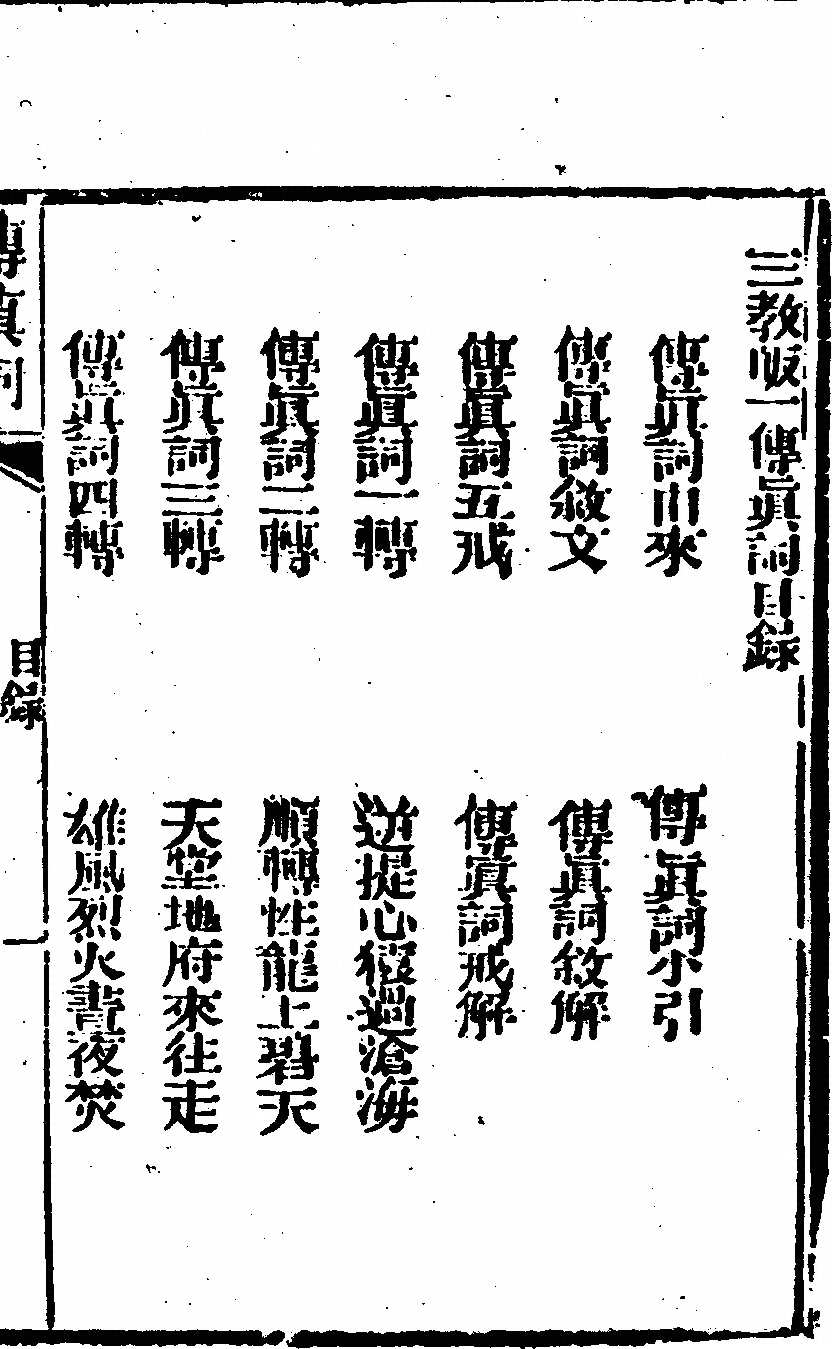 三教皈一傳眞詞目錄
傳眞詞由來 傳眞詞小引
傳眞詞敘文 傳眞詞敘解
傳眞詞五戒 傳眞詞戒解
傳眞詞一轉 逆提心猿過滄海
傳眞詞二轉 順轉性龍上碧天
傳眞詞三轉 天堂地府來往走
傳眞詞四轉 雄風烈火晝夜焚
傳眞詞 目錄 一